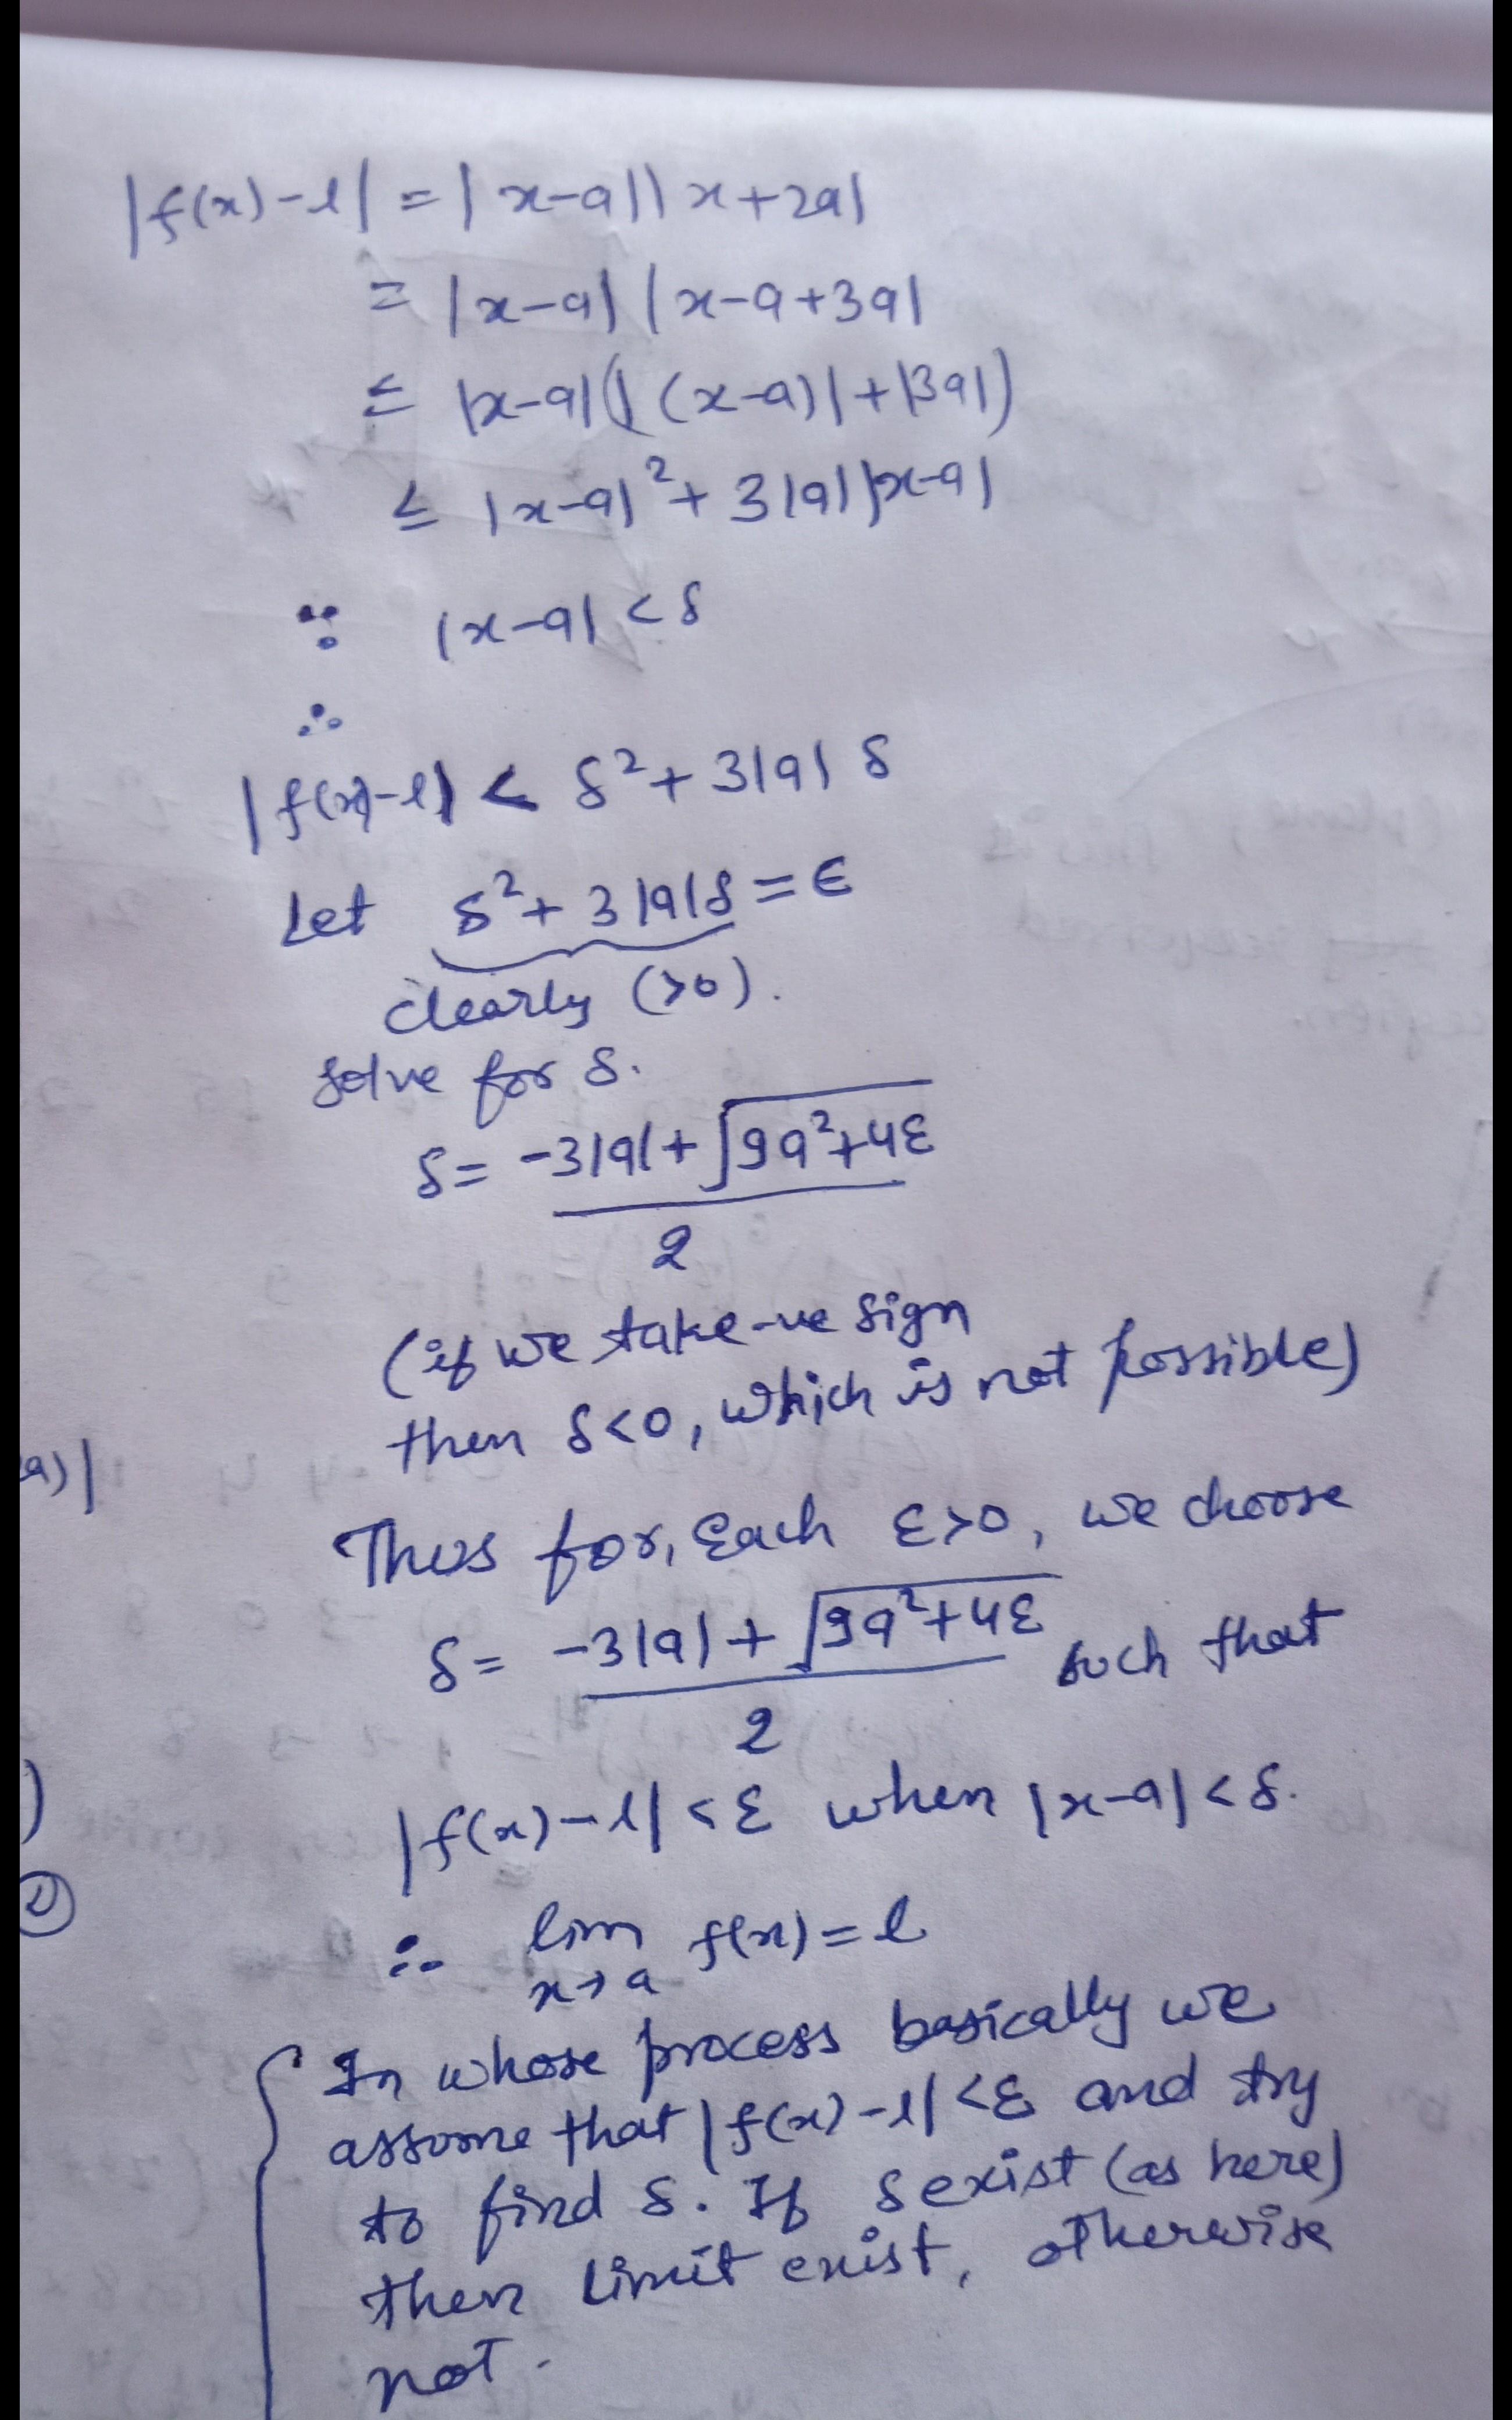 |f(x)-l| = |x-a||x+2a|
= |x-a| |x-a+3a|
≤ |x-a|(|(x-a)|+|3a|)
≤ |x-a|²+ 3|a||x-a|
∵ |x-a| < δ
∴
|f(x)-l| < δ²+ 3|a| δ
Let δ²+ 3|a|δ = ϵ
clearly (>0).
solve for δ.
δ = -3|a|+√9a²+4ε
2
(if we take -ve sign
then δ<0, which is not possible)
a)|
Thus for, Each ε>0, we choose
δ = -3|a|+ √9a²+4ε such that
2
)
|f(x)-l| < ε when |x-a| < δ.
∴ lim f(x) = l
x→a
In whose process basically we
assome that |f(x)-l| < ε and try
to find δ. If δ exist (as here)
then limit exist, otherwise
not.